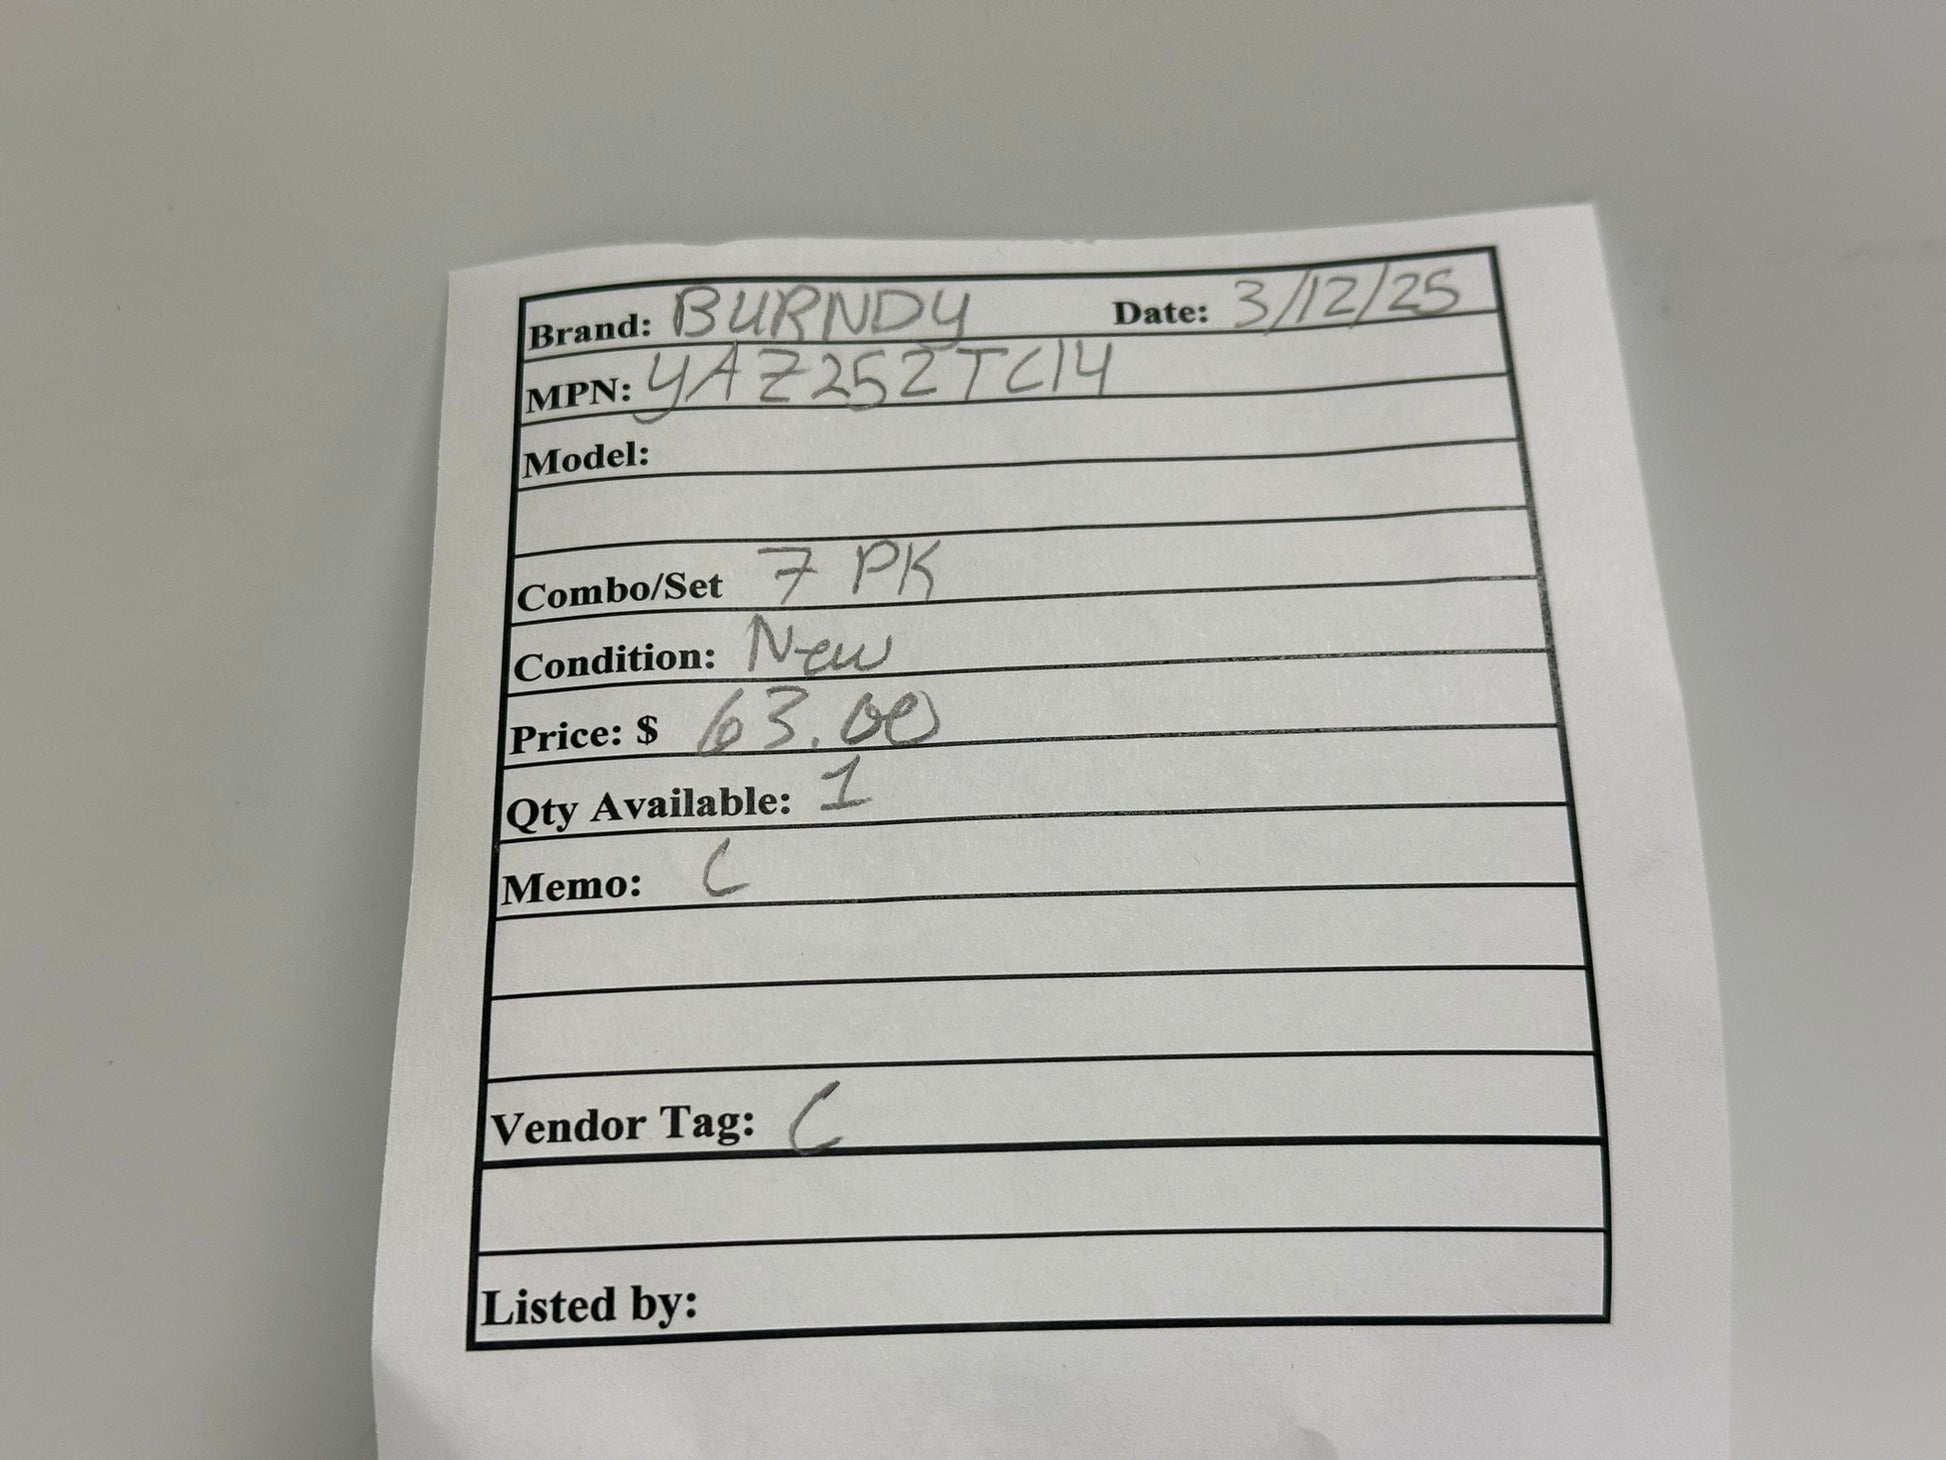 Brand: BURNDY Date: 3/12/25
MPN: YAZ252TC14
Model:
Combo/Set 7 PK
Condition: New
Price: $ 63.00
Qty Available: 1
Memo: C
Vendor Tag: C
Listed by: